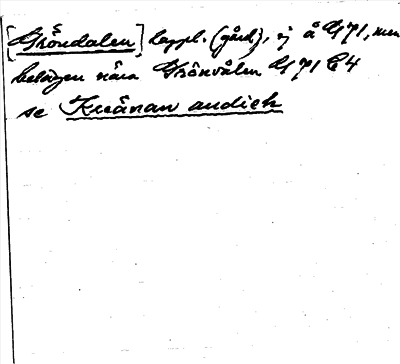 [Gröndalen] lappl. (gård), ej å G 71, men
belägen nära Grönvålen G 71 C4
se Kruanan audiek